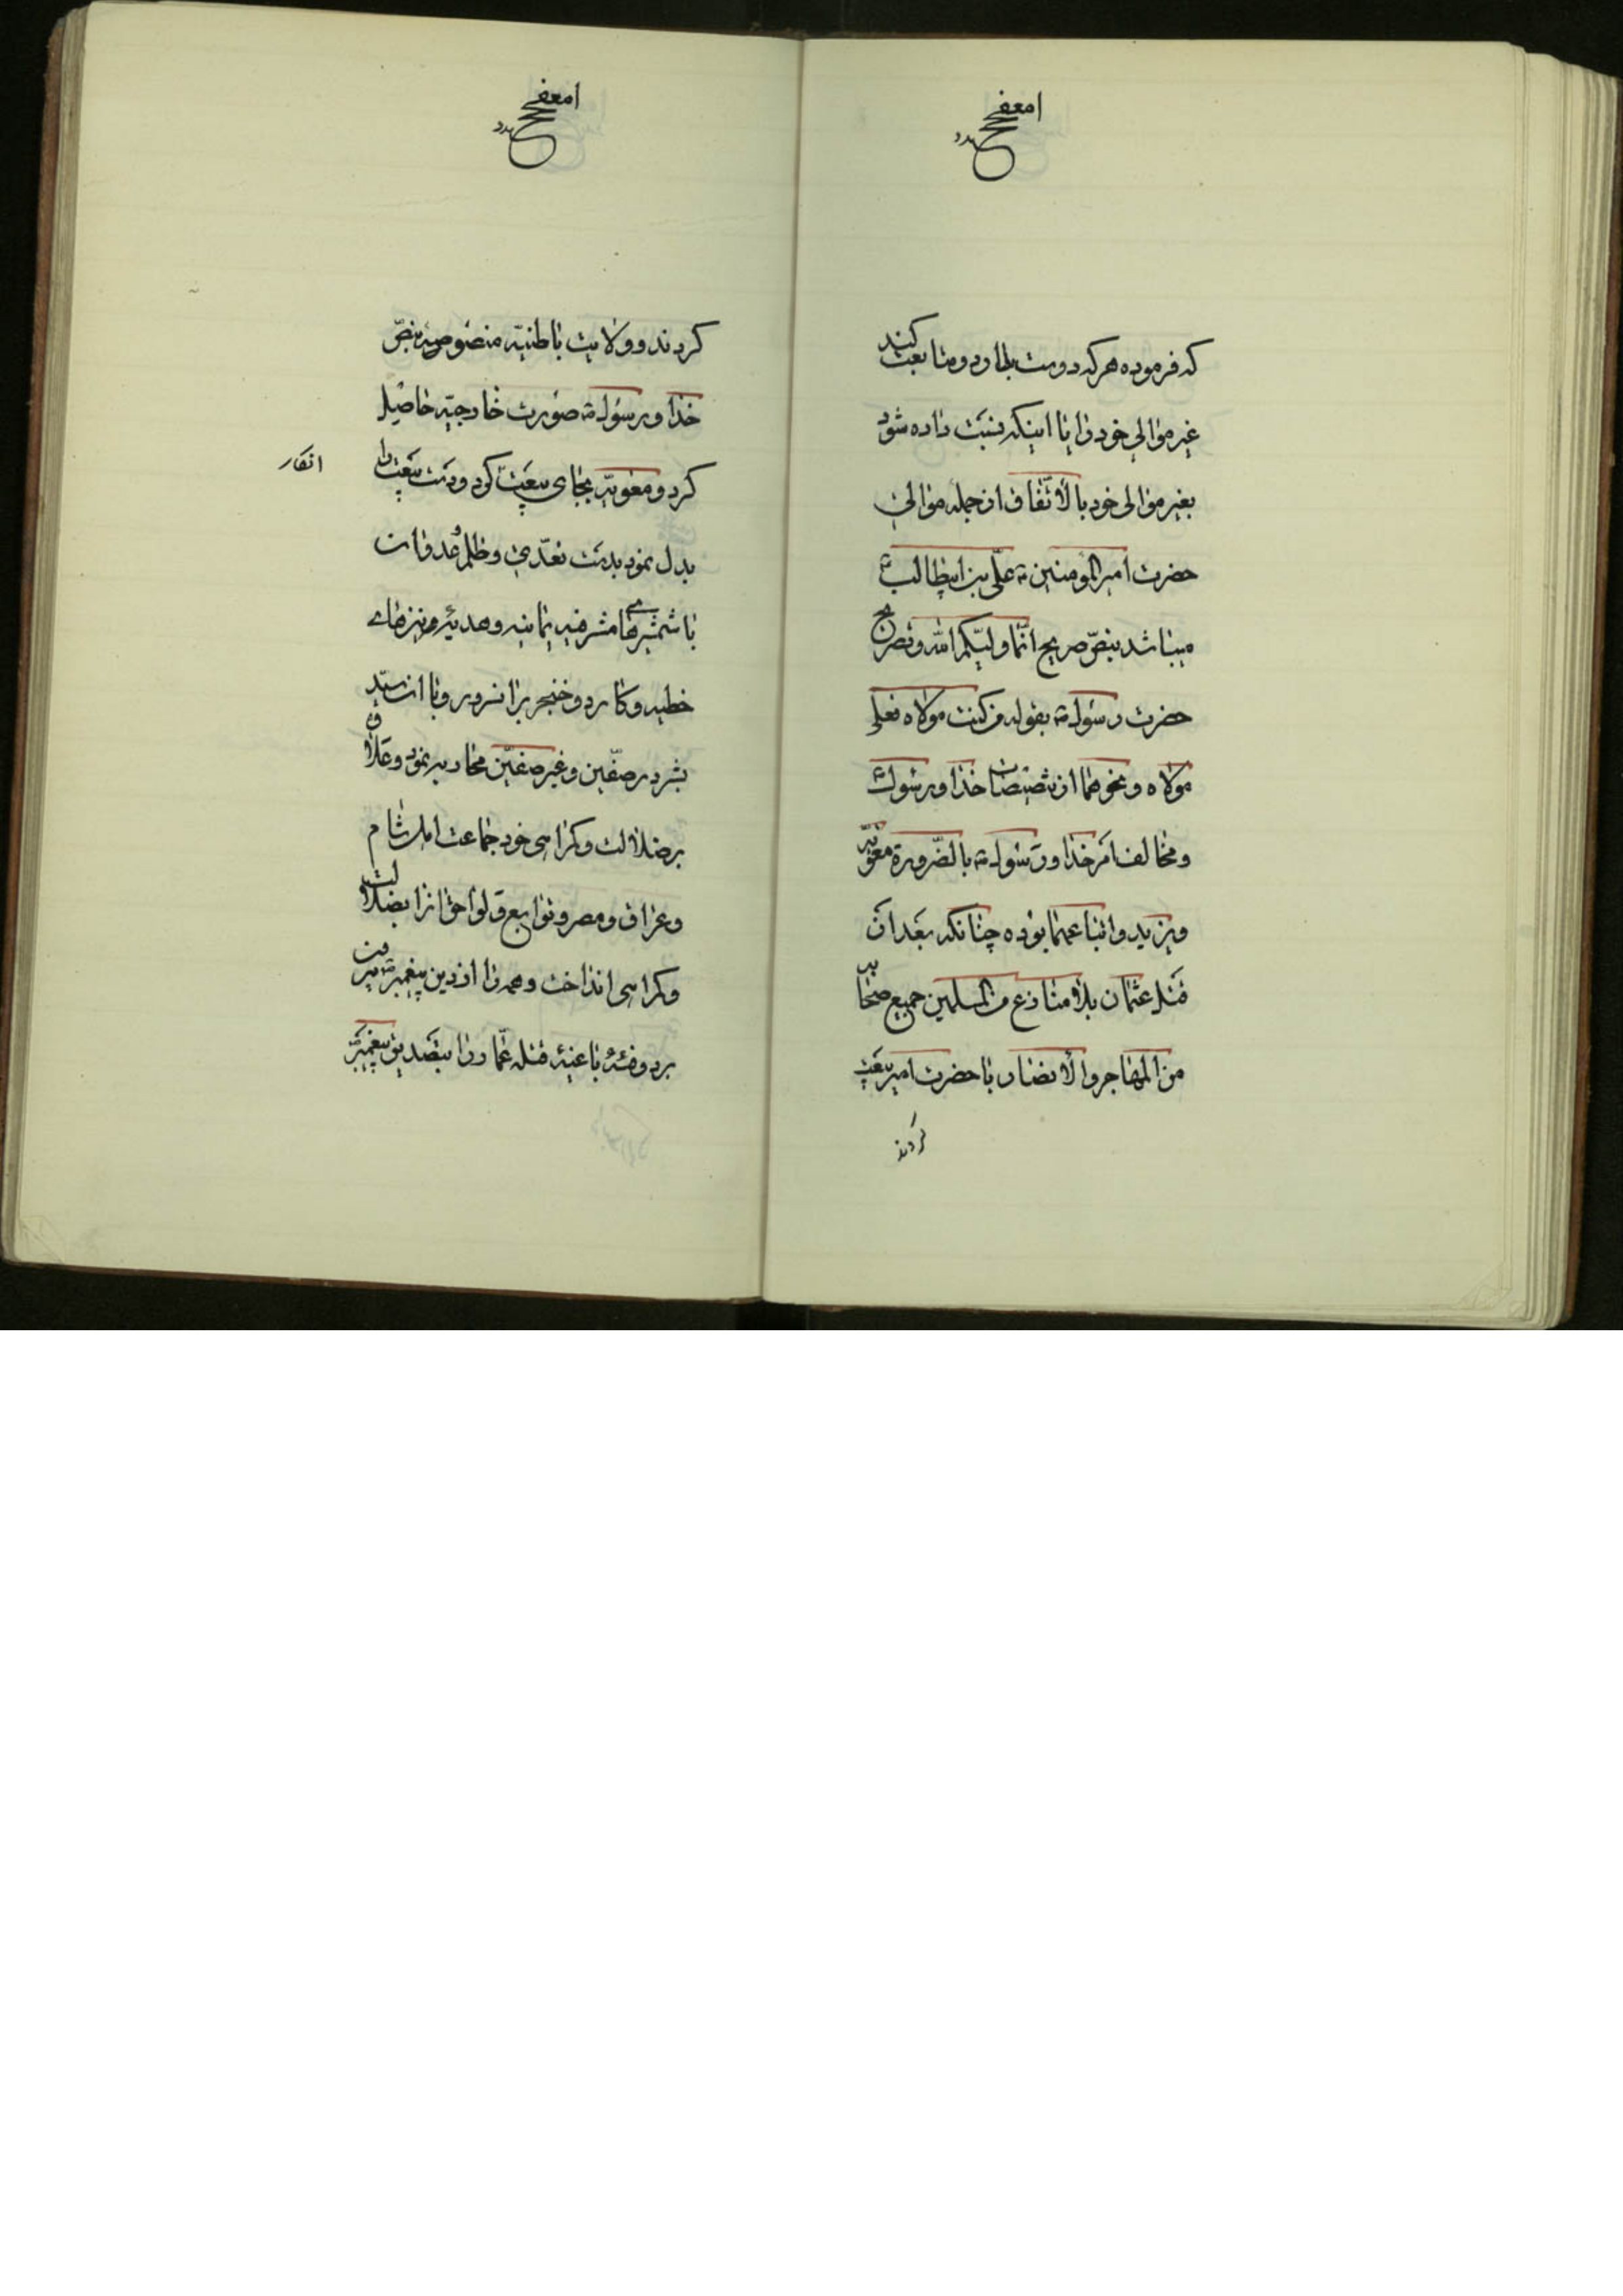 که فرموده هر که دوست بدارد و متابعت کند
غیر موالی خود را یا اینکه نسبت داده شود
بغیر موالی خود بالاتّفاق از جمله موالی
حضرت امیر المومنین علیّ بن ابیطالب
میباشد بنصّ صریح انّما ولیّکم الله و تصریح
حضرت رسول بقوله من کنت مولاه فعلی
مولاه و نحوهما از تنصیصات خدا و رسول
و مخالف امر خدا و رسول بالضّرورة معویّه
و یزید و اتباعهما بوده چنانکه بعد از
قتل عثمان بلا منازع من المسلمین جمیع صحابه
من المهاجر و الأنصار با حضرت امیر بیعت
کردند
کردند و ولایت باطنیّه منصوصه بنصّ
خدا و رسول صورت خارجیّه حاصل
کرد و معویّه بجای بیعت کردو دست بیعت را
انکار
بدل نمود بدست تعدّی و ظلم و عدوان
با شمشیرهای مشرفیه یمانیه و هدیّه و نیزهای
خطیه و کارد و خنجر بران سرور و با ان سید
بشر در صفّین و غیر صفّین محاربه نمود و علاوه
بر ضلالت و کراهی خود جماعت اهل شام
و عراق و مصر و توابع و لواحق انرا بضلالت
و کراهی انداخت و همه را از دین پیغمبر بیرون
برد و فئهٔ باغیهٔ قتلهٔ عمّار را بتصدیق پیغمبر